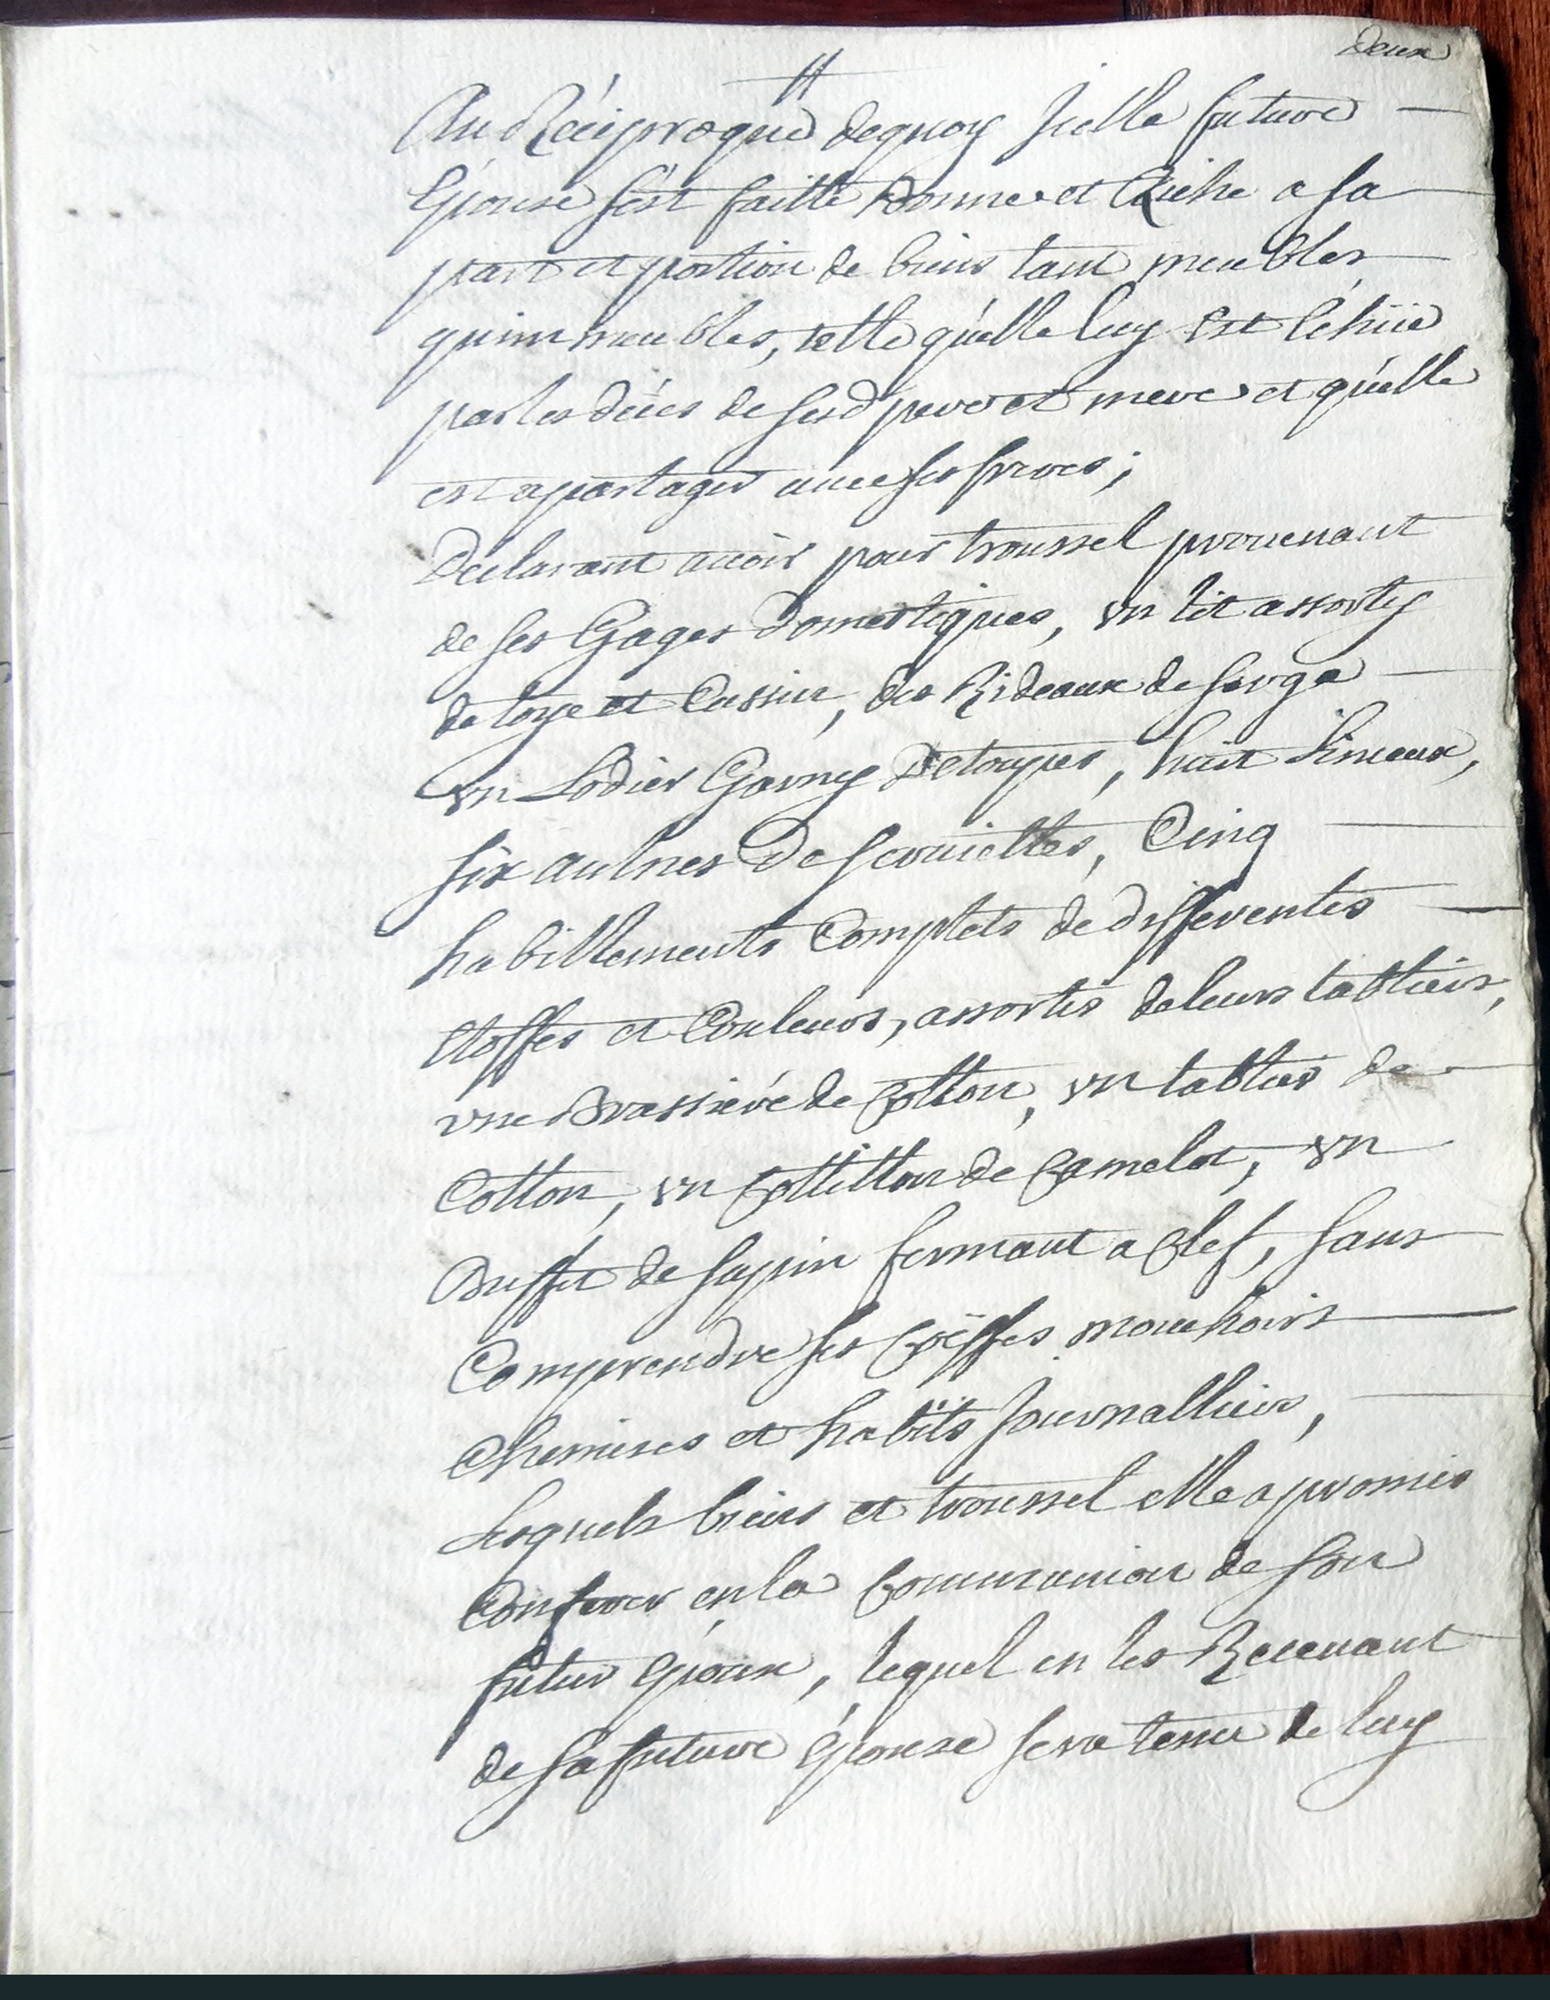 Deux
Au Réciproque dequoy Icelle future
Épouse s'est faitte bonne et Riche a sa
part et portion de biens tant meubles
qu'immeubles, telle qu'elle luy est échüe
par les décés de sesd pere et mere et qu'elle
est apartager avec ses freres;
Declarant avoir pour troussel provenant
de ses Gages domestiques, vn lit assorty
de toye et Cussin, des Rideaux de serge
vn Lodier Garny Detoupes, huit linceux,
six aulnes De serviettes, Cinq
habillements Complets de differentes
étoffes et Couleurs, assortis deleurs tabliers,
vne Brassiére de Cotton, vn tablier de
Cotton, vn Cottillon de Camelot, vn
Buffet de sapin fermant a Clef, sans
Comprendre ses Coëffes mouchoirs
Chemises et habits Journalliers,
Lesquels biens et troussel elle a promis
Conferer en la Communion de son
futur Époux, lequel en les Recevant
de sa future Épouse sera tenu de luy